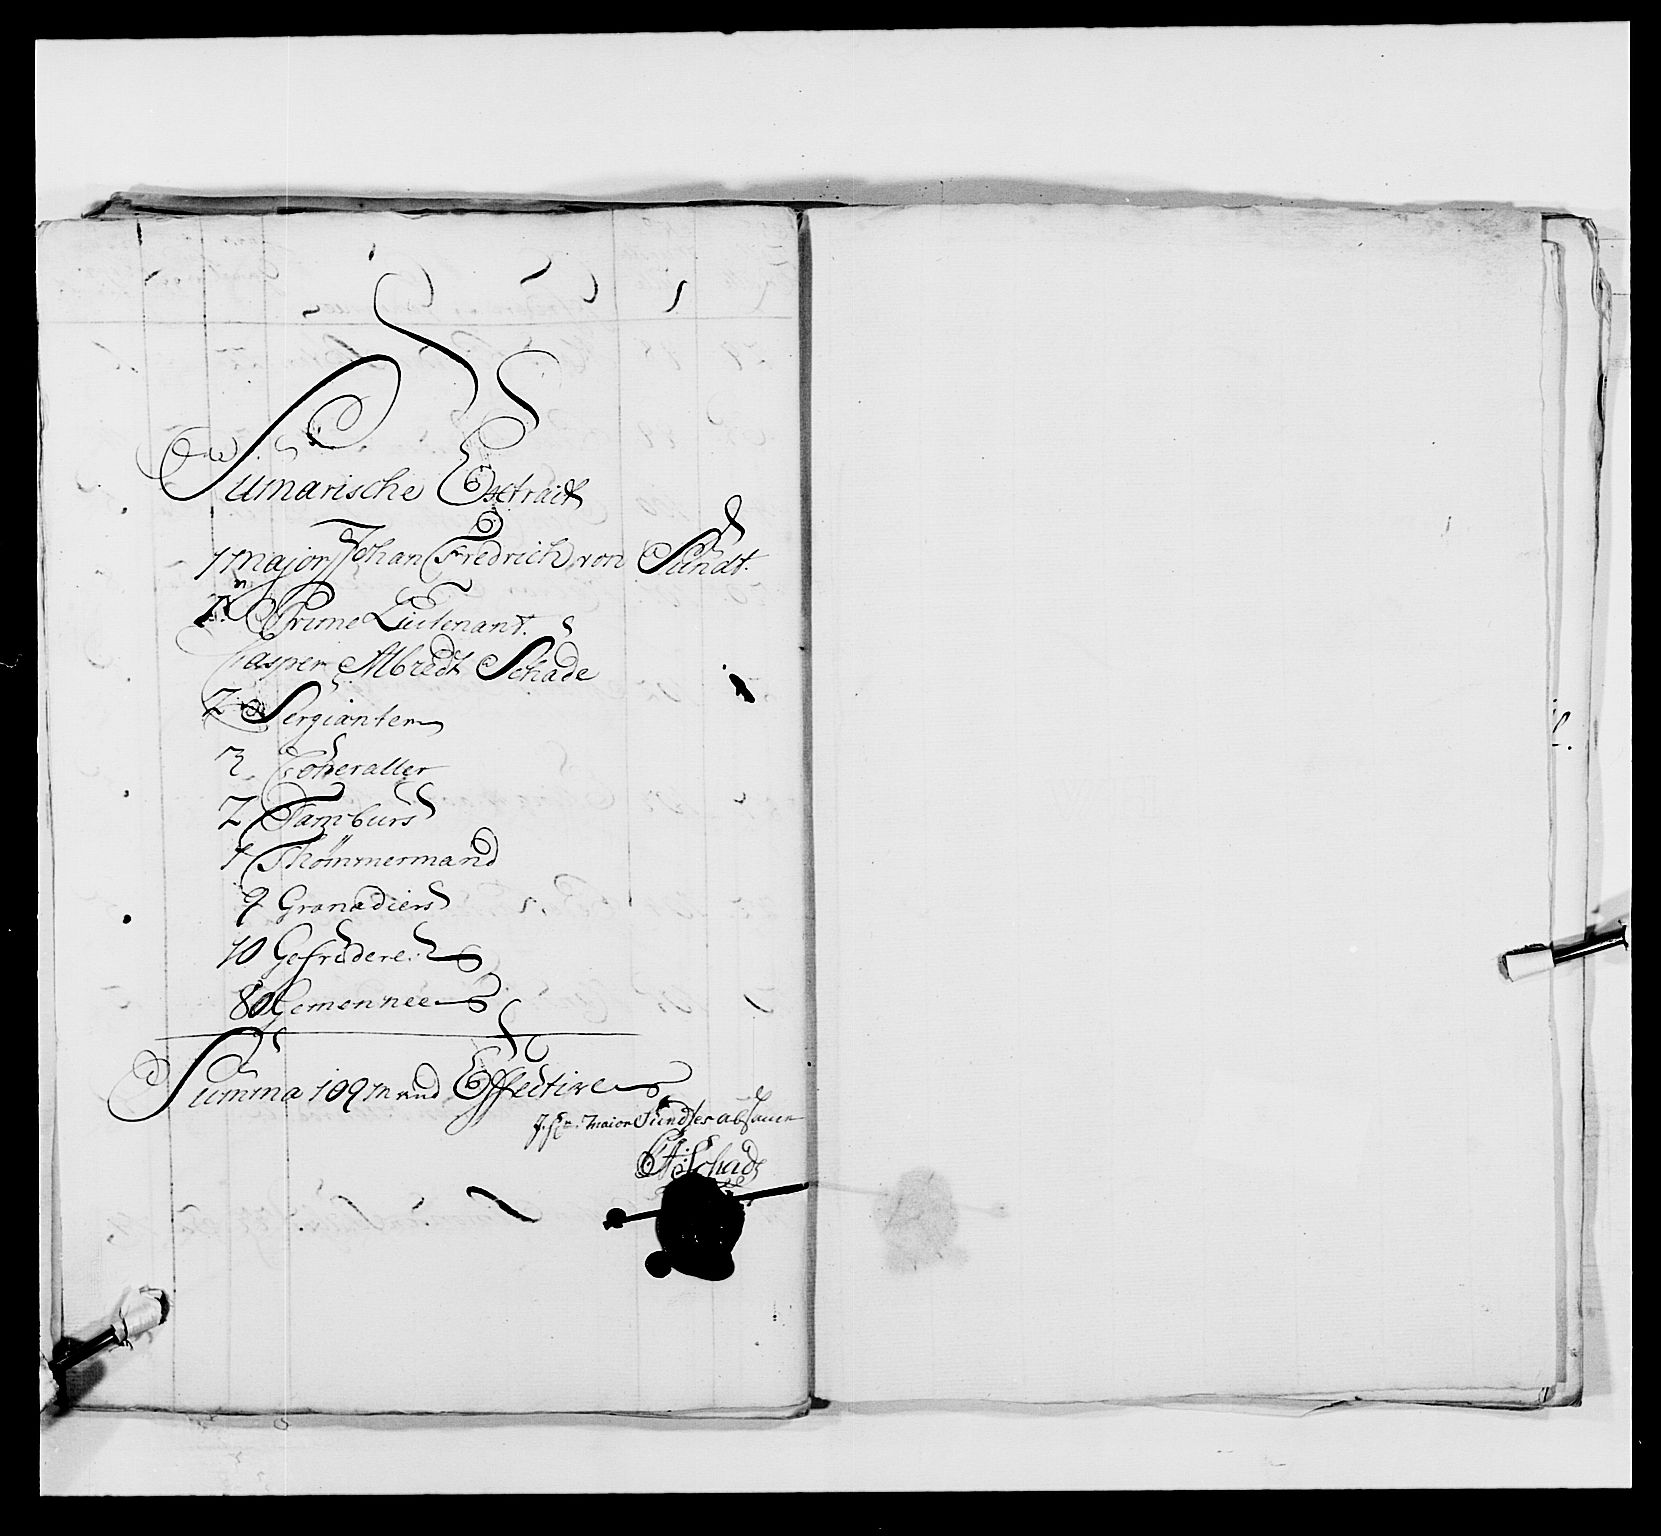 Sum̄arische Extract
1 major Johan Fredrich von Sundt.
1 Prime Lieutenant.
Casper Albredt Schade
2 Sergianter
3 Coperaller
2 Tamburs
1 Thömmermand
9 Granadiers
10 Gefridere
80 Gemennee
Summa 109 mand Effective
J. Hr. Maior Sundtes absaure
CASchade